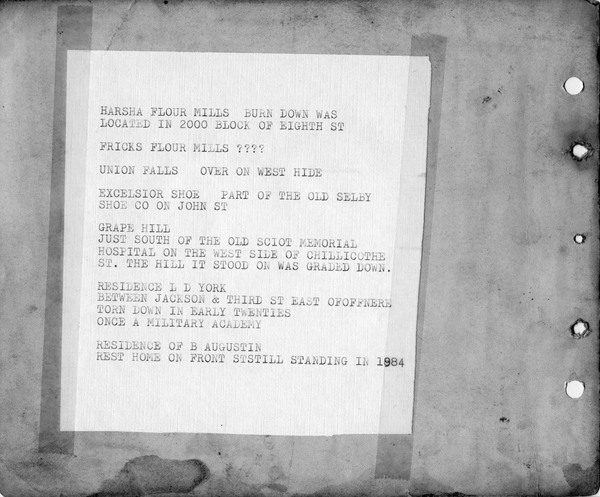 HARSHA FLOUR MILLS BURN DOWN WAS
LOCATED IN 2000 BLOCK OF EIGHTH ST
FRICKS FLOUR MILLS ????
UNION FALLS OVER ON WEST HIDE
EXCELSIOR SHOE PART OF THE OLD SELBY
SHOE CO ON JOHN ST
GRAPE HILL
JUST SOUTH OF THE OLD SCIOT MEMORIAL
HOSPITAL ON THE WEST SIDE OF CHILLICOTHE
ST. THE HILL IT STOOD ON WAS GRADED DOWN.
RESIDENCE L D YORK
BETWEEN JACKSON & THIRD ST EAST OFOFFNERE
TORN DOWN IN EARLY TWENTIES
ONCE A MILITARY ACADEMY
RESIDENCE OF B AUGUSTIN
REST HOME ON FRONT STSTILL STANDING IN 1984